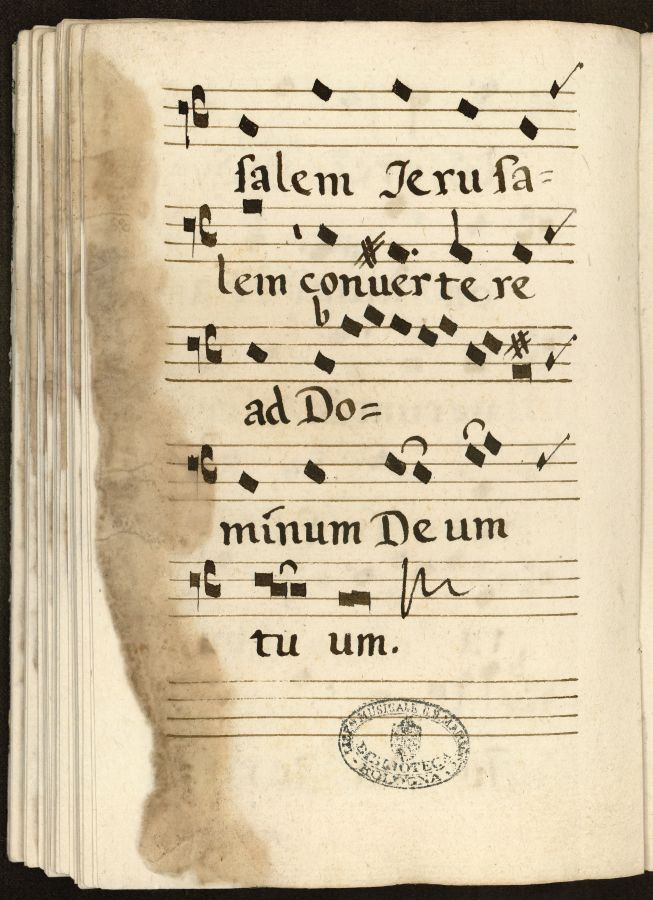 salem Jerusa=
lem conuertere re
ad Do=
minum Deum
tu um.
BIBLIOTECA
BOLOGNA